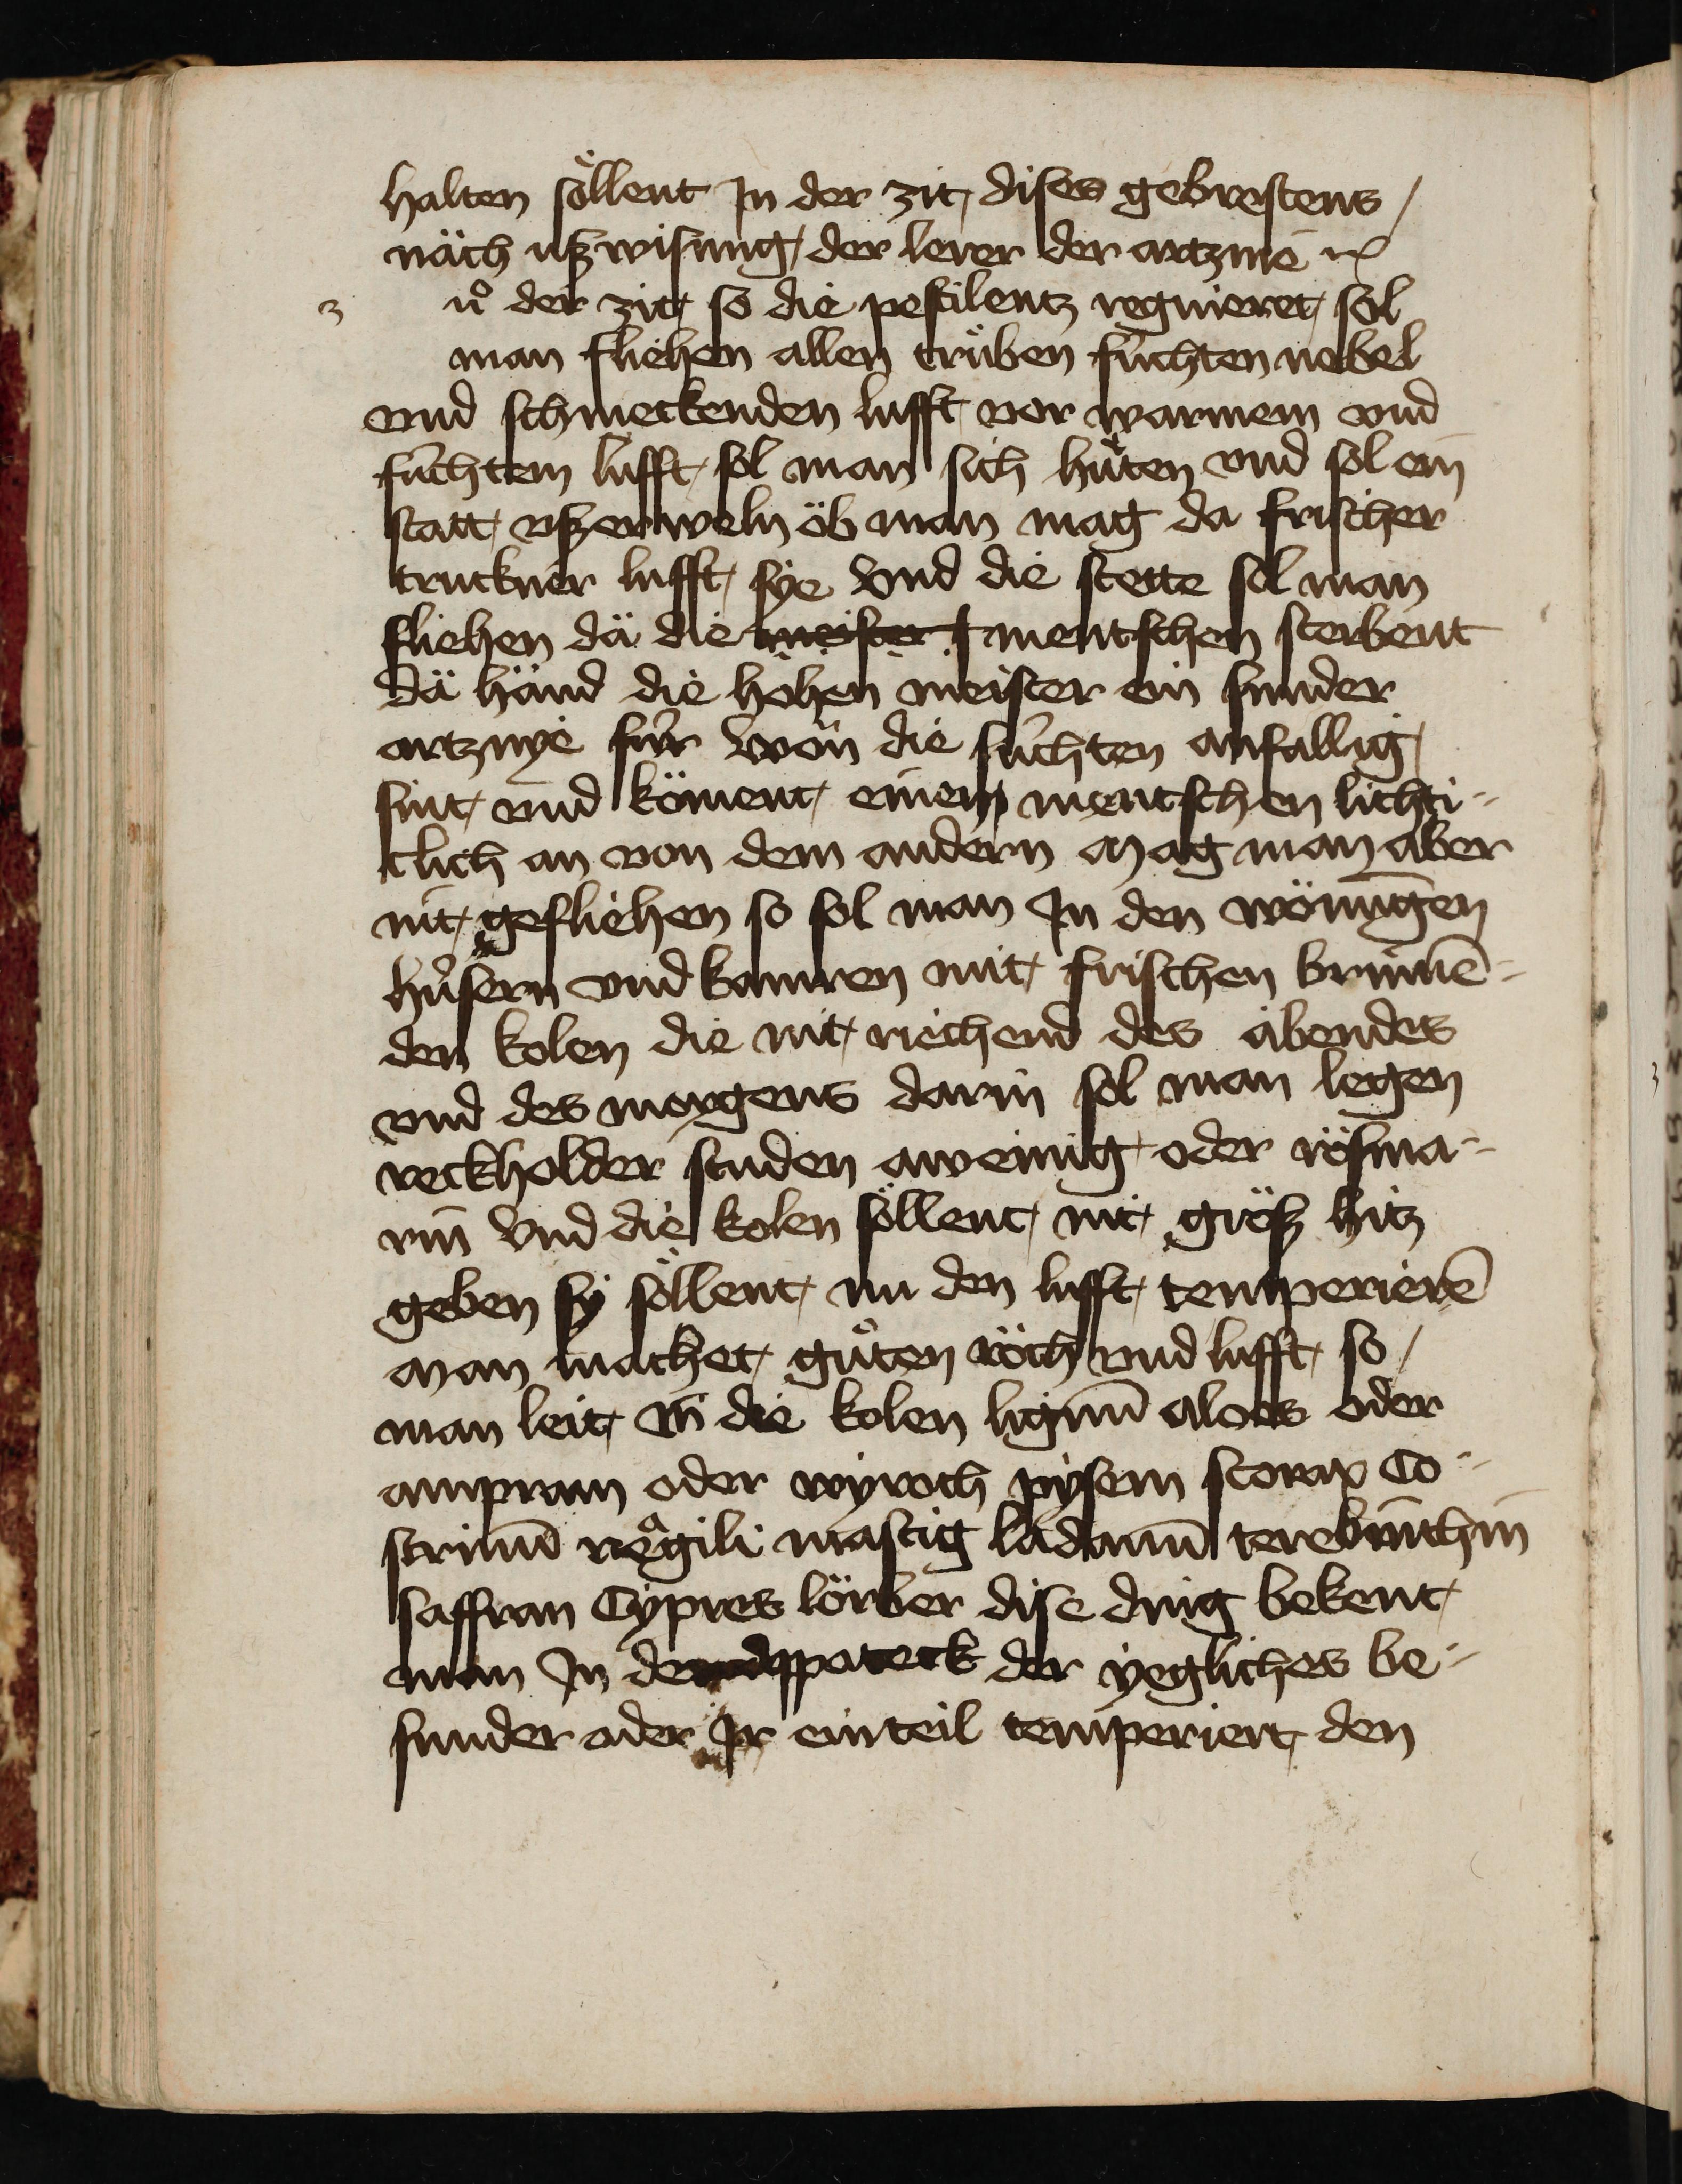 halten soͤllent Jn der zit dises gebrestens /
näch uszwisung der lerer der artznïe ꝛc
z uͦ der zit so die pestilentz regnieret sol
man fliehen allen truͤben fuͤchten nebel
vnd schmeckenden lufft vor warmem vnd
fuͤchtem lufft sol man sich huͤten vnd sol ein
statt vszerweln öb man mag da frischer
truckner lufft sye Vnd die stette sol man
fliehen dä die meister mentschen sterbent
dä händ die hohen meister ein sunder
artznye fuͤr Won die suͤchten anfallig
sint vnd köment einem mentschen lichti-
clich an von dem andern Mag man aber
nit gefliehen so sol man Jn den wönungen
huͤsern vnd kamren mit frischen brinnē-
den kolen die nit riechend des äbendes
vnd des morgens darin sol man legen
reckholder studen aweinig oder rösma-
rin Vnd die kolen söllent nit grösz hitz
geben sy söllent nu den lufft temperierē
Man machet guͤten röch vnd lufft so /
man leit vff die kolen lignū aloes oder
ampram oder wyroch pysem storax Co-
strinū negili mastig ladanū terebinthin
saffran Cypres lörber dise ding bekent
man Jn der appoteck der yegliches be-
sunder oder Jr einteil temperiert den